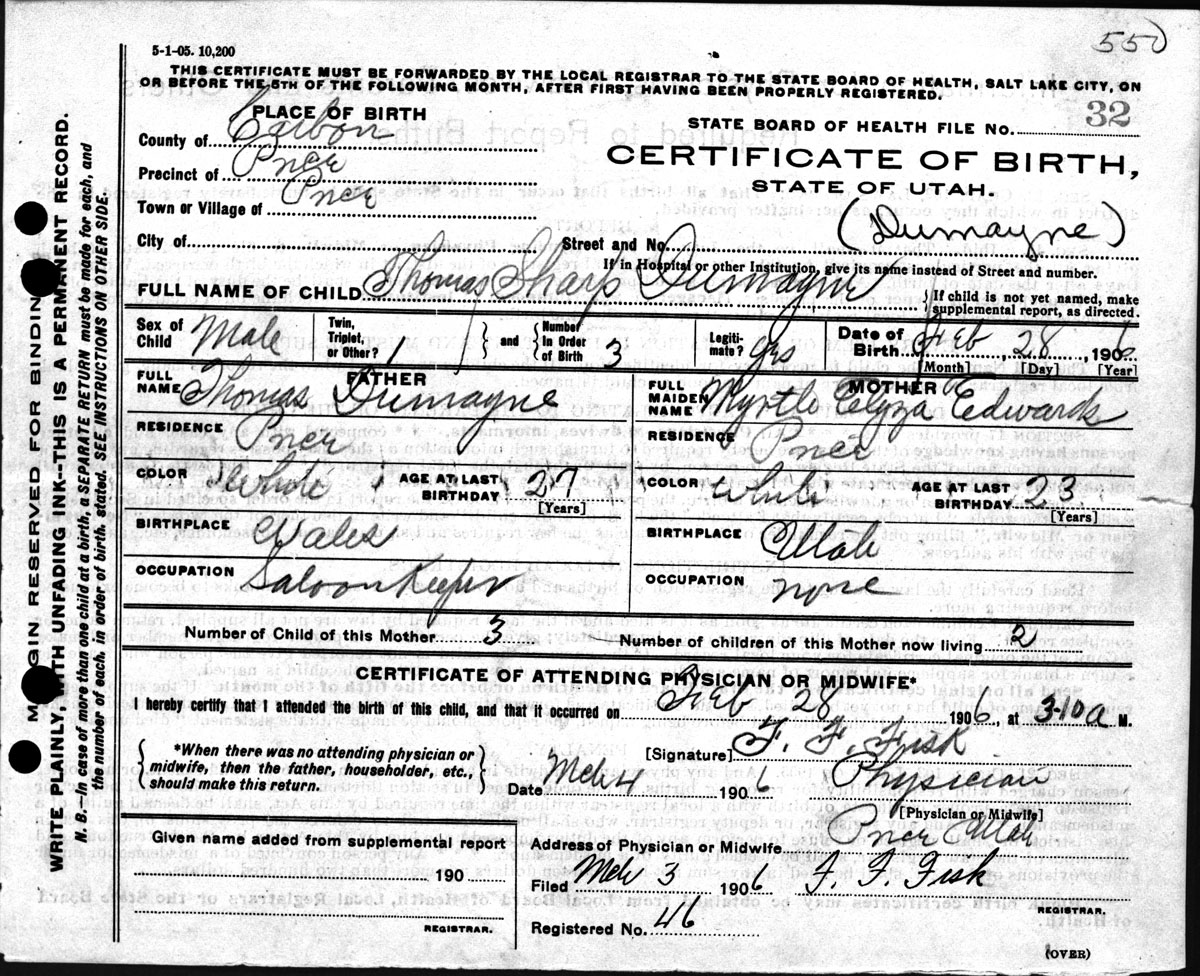 550
5-1-05. 10,200
THIS CERTIFICATE MUST BE FORWARDED BY THE LOCAL REGISTRAR TO THE STATE BOARD OF HEALTH, SALT LAKE CITY, ON
OR BEFORE THE 5TH OF THE FOLLOWING MONTH, AFTER FIRST HAVING BEEN PROPERLY REGISTERED.
PLACE OF BIRTH
STATE BOARD OF HEALTH FILE NO. 32
County of Carbon
CERTIFICATE OF BIRTH,
Precinct of Price
STATE OF UTAH.
Town or Village of Price
(Dumayne)
City of Street and No.
If in Hospital or other Institution, give its name instead of Street and number.
FULL NAME OF CHILD Thomas Sharp Dumayne
{If child is not yet named, make
supplemental report, as directed.
Sex of Child Male
Twin, Triplet, or Other? 1
} and {
Number In Order of Birth 3
Legitimate? yes
Date of Birth Feb, 28, 1906
[Month] [Day] [Year]
FATHER
FULL NAME Thomas Dumayne
RESIDENCE Price
COLOR White
AGE AT LAST BIRTHDAY 27
[Years]
BIRTHPLACE Wales
OCCUPATION Saloon Keeper
MOTHER
FULL MAIDEN NAME Myrtle Elyza Edwards
RESIDENCE Price
COLOR White
AGE AT LAST BIRTHDAY 23
[Years]
BIRTHPLACE Utah
OCCUPATION none
Number of Child of this Mother 3
Number of children of this Mother now living 2
CERTIFICATE OF ATTENDING PHYSICIAN OR MIDWIFE*
I hereby certify that I attended the birth of this child, and that it occurred on Feb 28 1906, at 3-10 a M.
{*When there was no attending physician or
midwife, then the father, householder, etc.,
should make this return.}
[Signature] F. F. Fisk
Date Mch 4 1906
Physician
[Physician or Midwife]
Address of Physician or Midwife Price Utah
Given name added from supplemental report
190
REGISTRAR.
Filed Mch 3 1906 F. F. Fisk
REGISTRAR.
Registered No. 46
(OVER)
MARGIN RESERVED FOR BINDING
WRITE PLAINLY, WITH UNFADING INK--THIS IS A PERMANENT RECORD.
N. B.--In case of more than one child at a birth, a SEPARATE RETURN must be made for each, and
the number of each, in order of birth, stated. SEE INSTRUCTIONS ON OTHER SIDE.